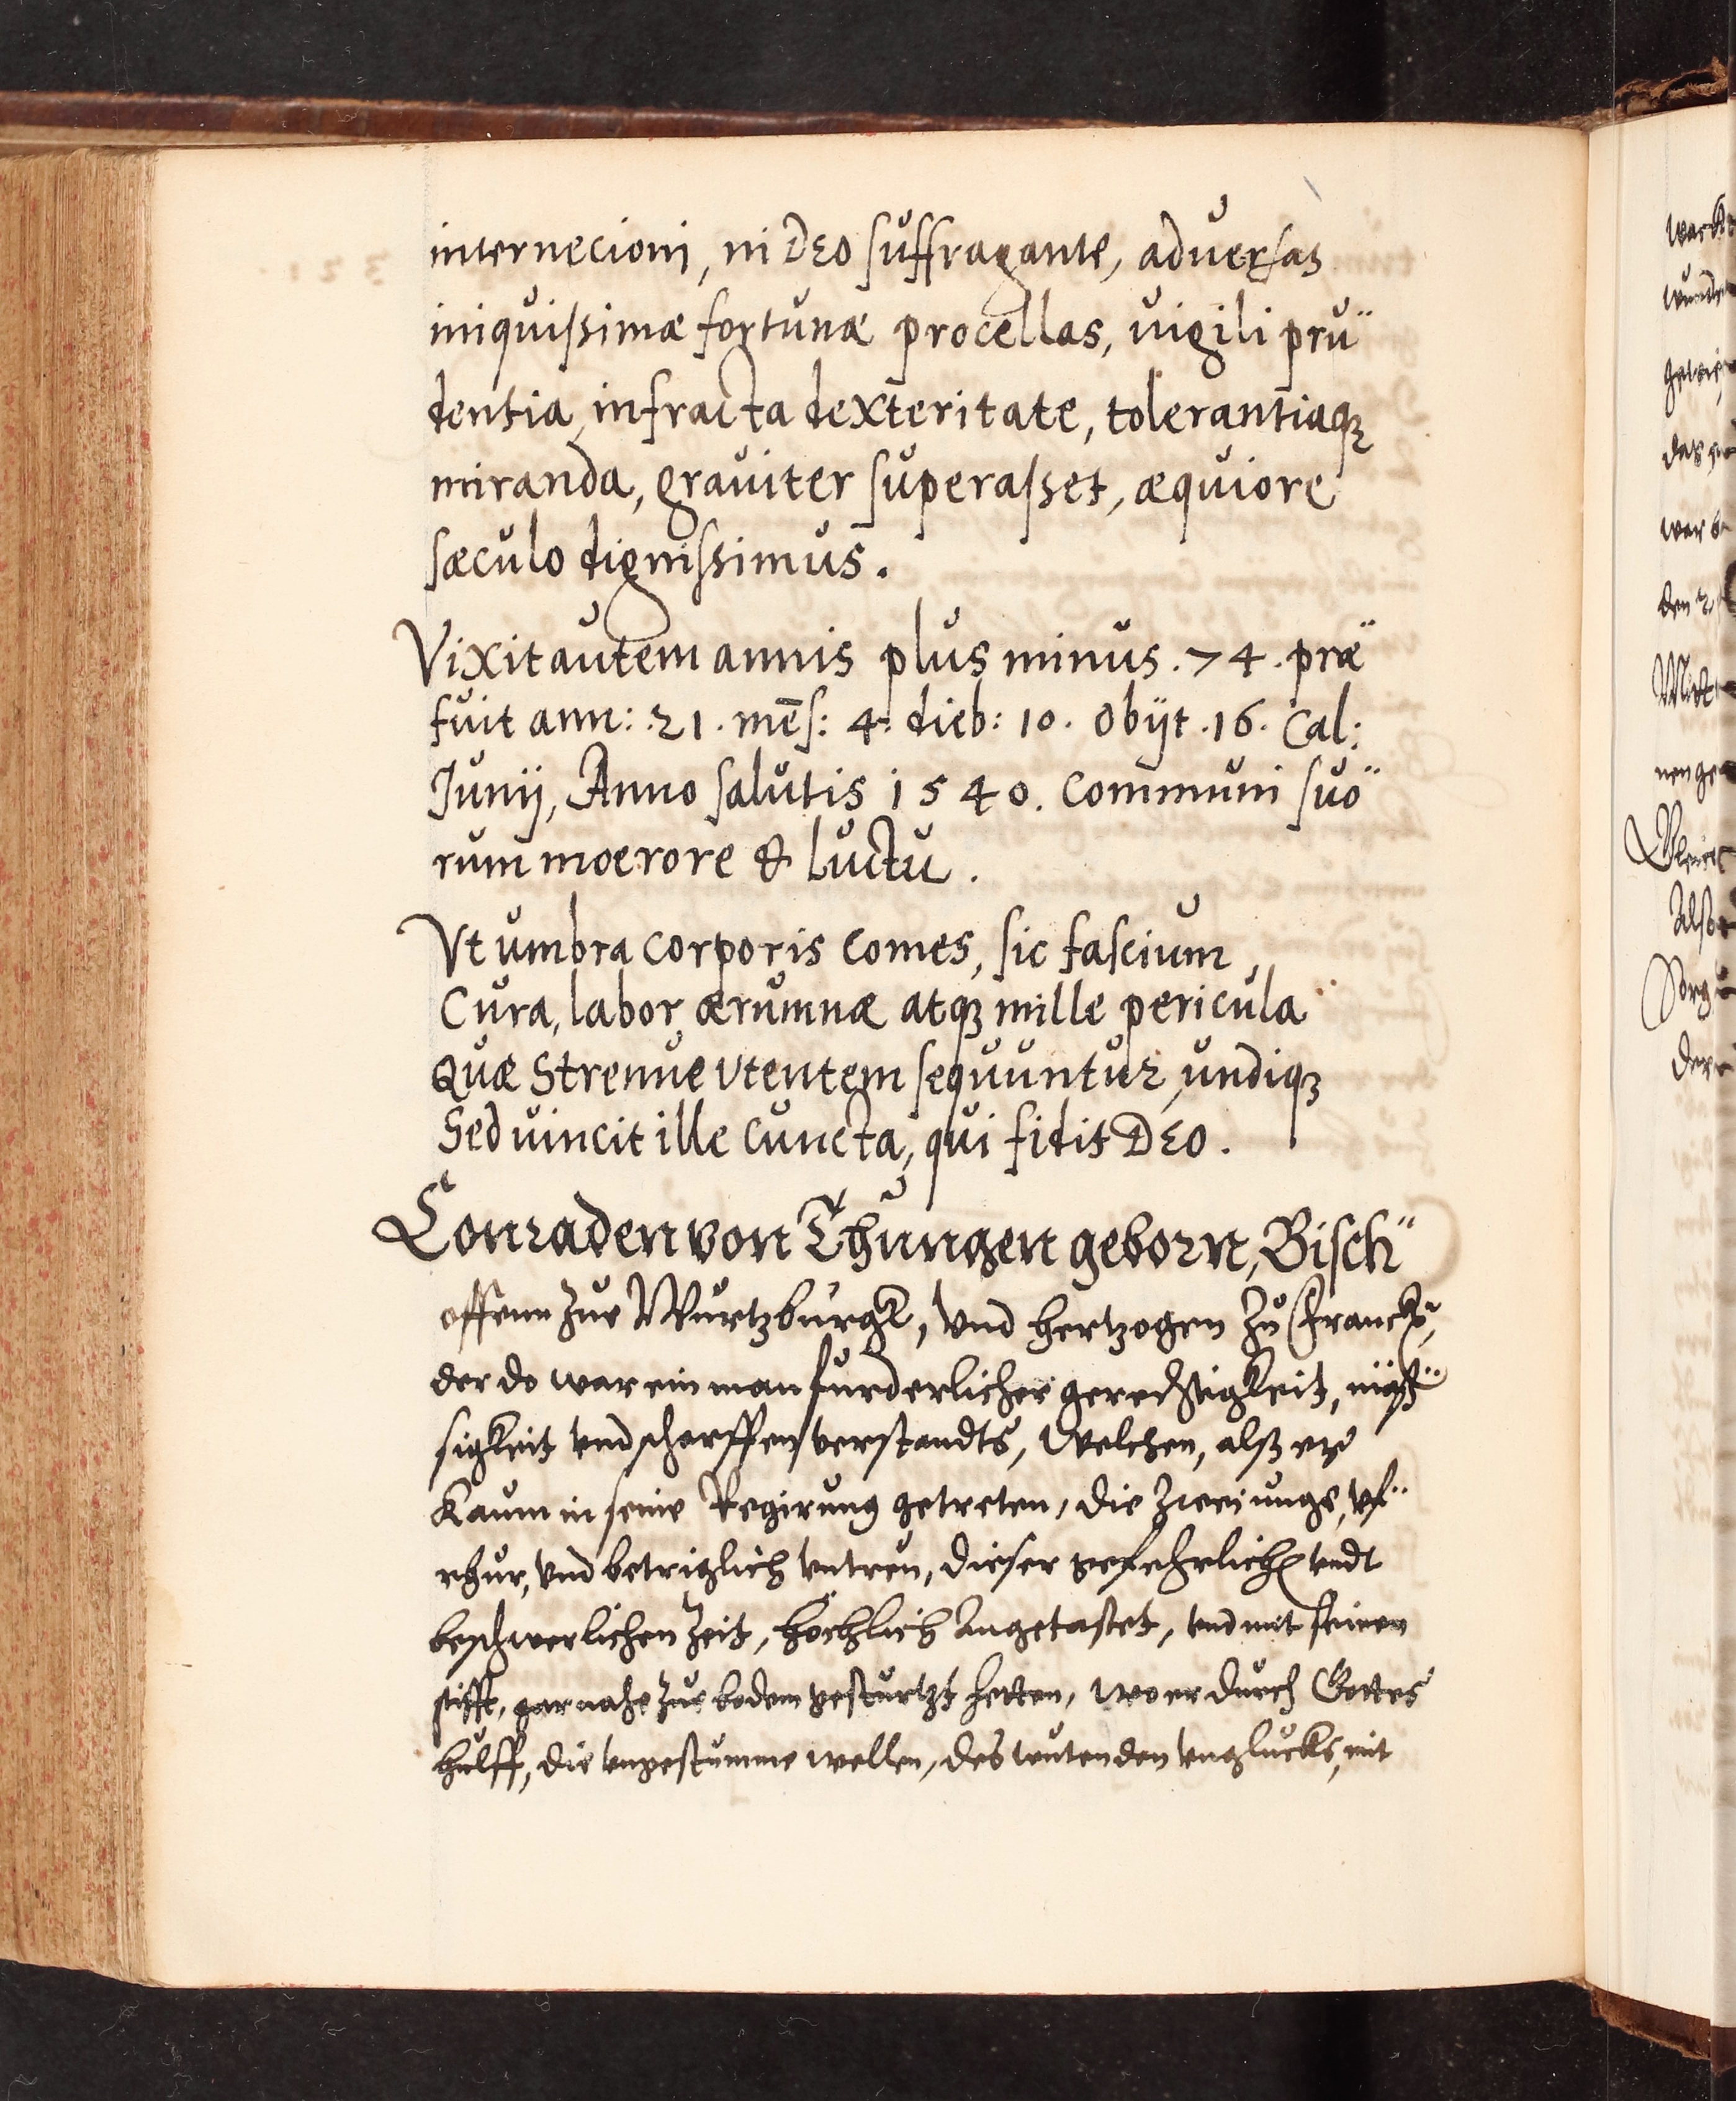 internecioni, ni DEO suffragante, aduersas
iniquissimæ fortunæ procellas, uigili pru¨
dentia, infracta dexteritate, tolerantiaqꝫ
miranda, grauiter superasset, æquiore
sæculo dignissimus.
Vixit autem annis plus minus .74. præ¨
fuit ann: 21. mēs: 4. dieb: 10. Obijt .16. Cal:
Junij, Anno salutis 1540. Communi suo¨
rum moerore & luctu.
Vt umbra corporis Comes, sic fascium
Cura, labor, ærumnæ atqꝫ mille pericula
Quæ Strenue vtentem sequuntur, undiqꝫ
Sed uincit ille cuncta, qui fidit DEO.
Conraden von Thungen geborn, Bisch¨
offenn zur Wurtzburgk, vnd hertzogen zu Franckñ,
der do war ein man furderlicher gerechtigkeit, mäß¨
sigkeit vnd scharffen verstandts, Welchen, alß er
kaum in seine Regirung getreten, die zweiunge, vf¨
rhur, vnd betriglich vntreu, dieser gefehrlichen vndt
beschwerlichen zeit, höchlich angetastet, vnd mit seinen
stifft, gar nahe zur bodem gesturtzt hetten, wo er durch Gottes
hulff, die vngestumme wellen, des wutenden vnglucks, mit